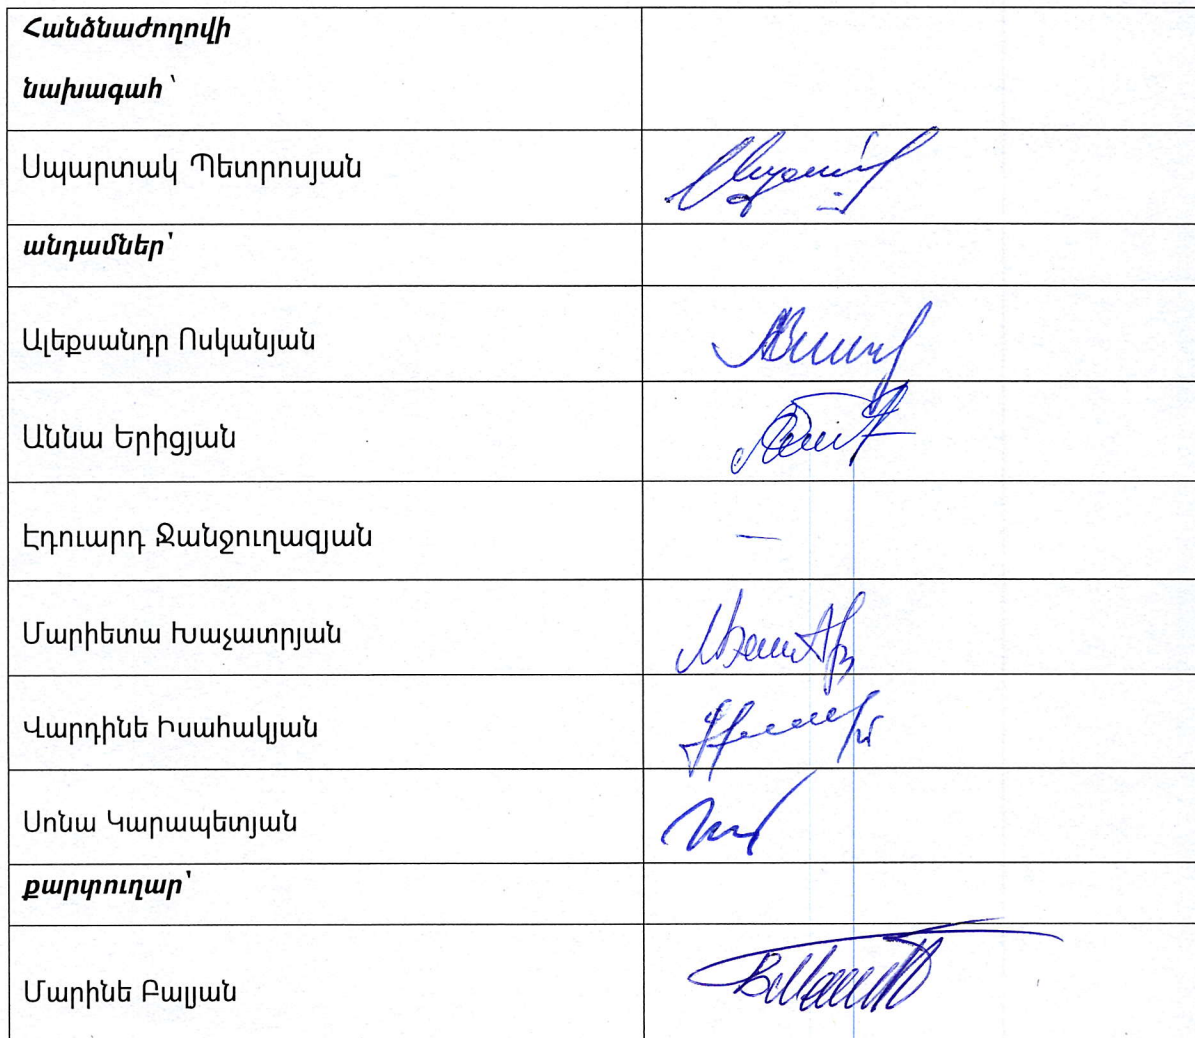 Հանձնաժողովի
նախագահ՝
Սպարտակ Պետրոսյան
անդամներ՝
Ալեքսանդր Ոսկանյան
Աննա Երիցյան
Էդուարդ Ջանջուղազյան
—
Մարիետա Խաչատրյան
Վարդինե Իսահակյան
Սոնա Կարապետյան
քարտուղար՝
Մարինե Բալյան